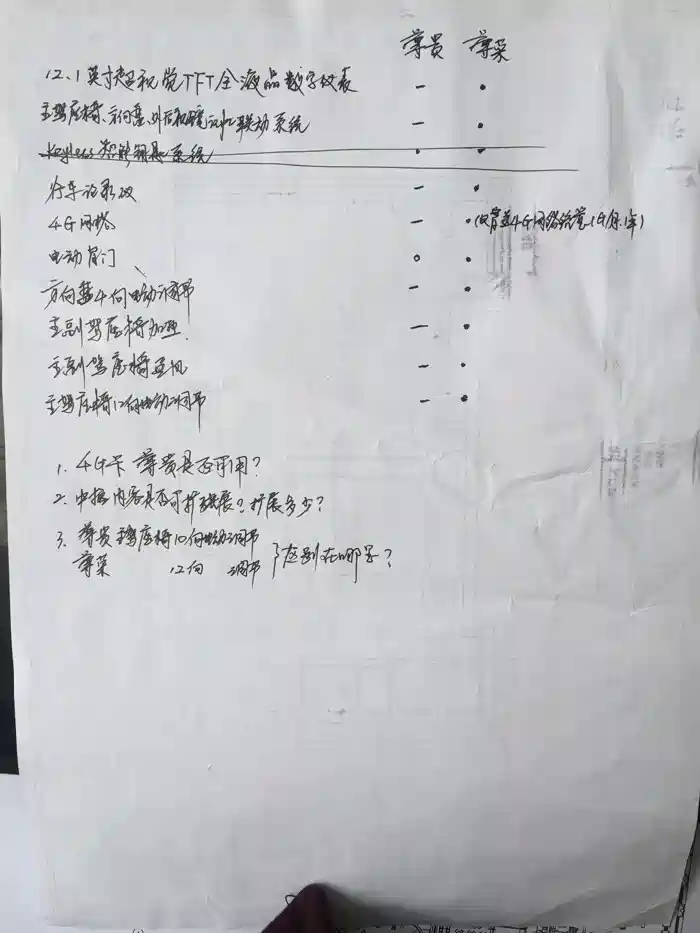 尊贵 尊荣
12.1英寸超视觉TFT全液晶数字仪表 - •
主驾座椅、方向盘、外后视镜记忆联动系统 - •
Keyless智能钥匙系统 • •
行车记录仪 - •
4G网络 - • (仅首年4G网络流量1G/月.1年)
电动背门 ○ •
方向盘4向电动调节 - •
主副驾座椅加热 - •
主副驾座椅通风 - •
主驾座椅12向电动调节 - •
1. 4G卡 尊贵是否可用?
2. 中控内容是否可扩展? 扩展多少?
3. 尊贵主驾座椅10向电动调节
尊荣 12向 调节 区别在哪里?